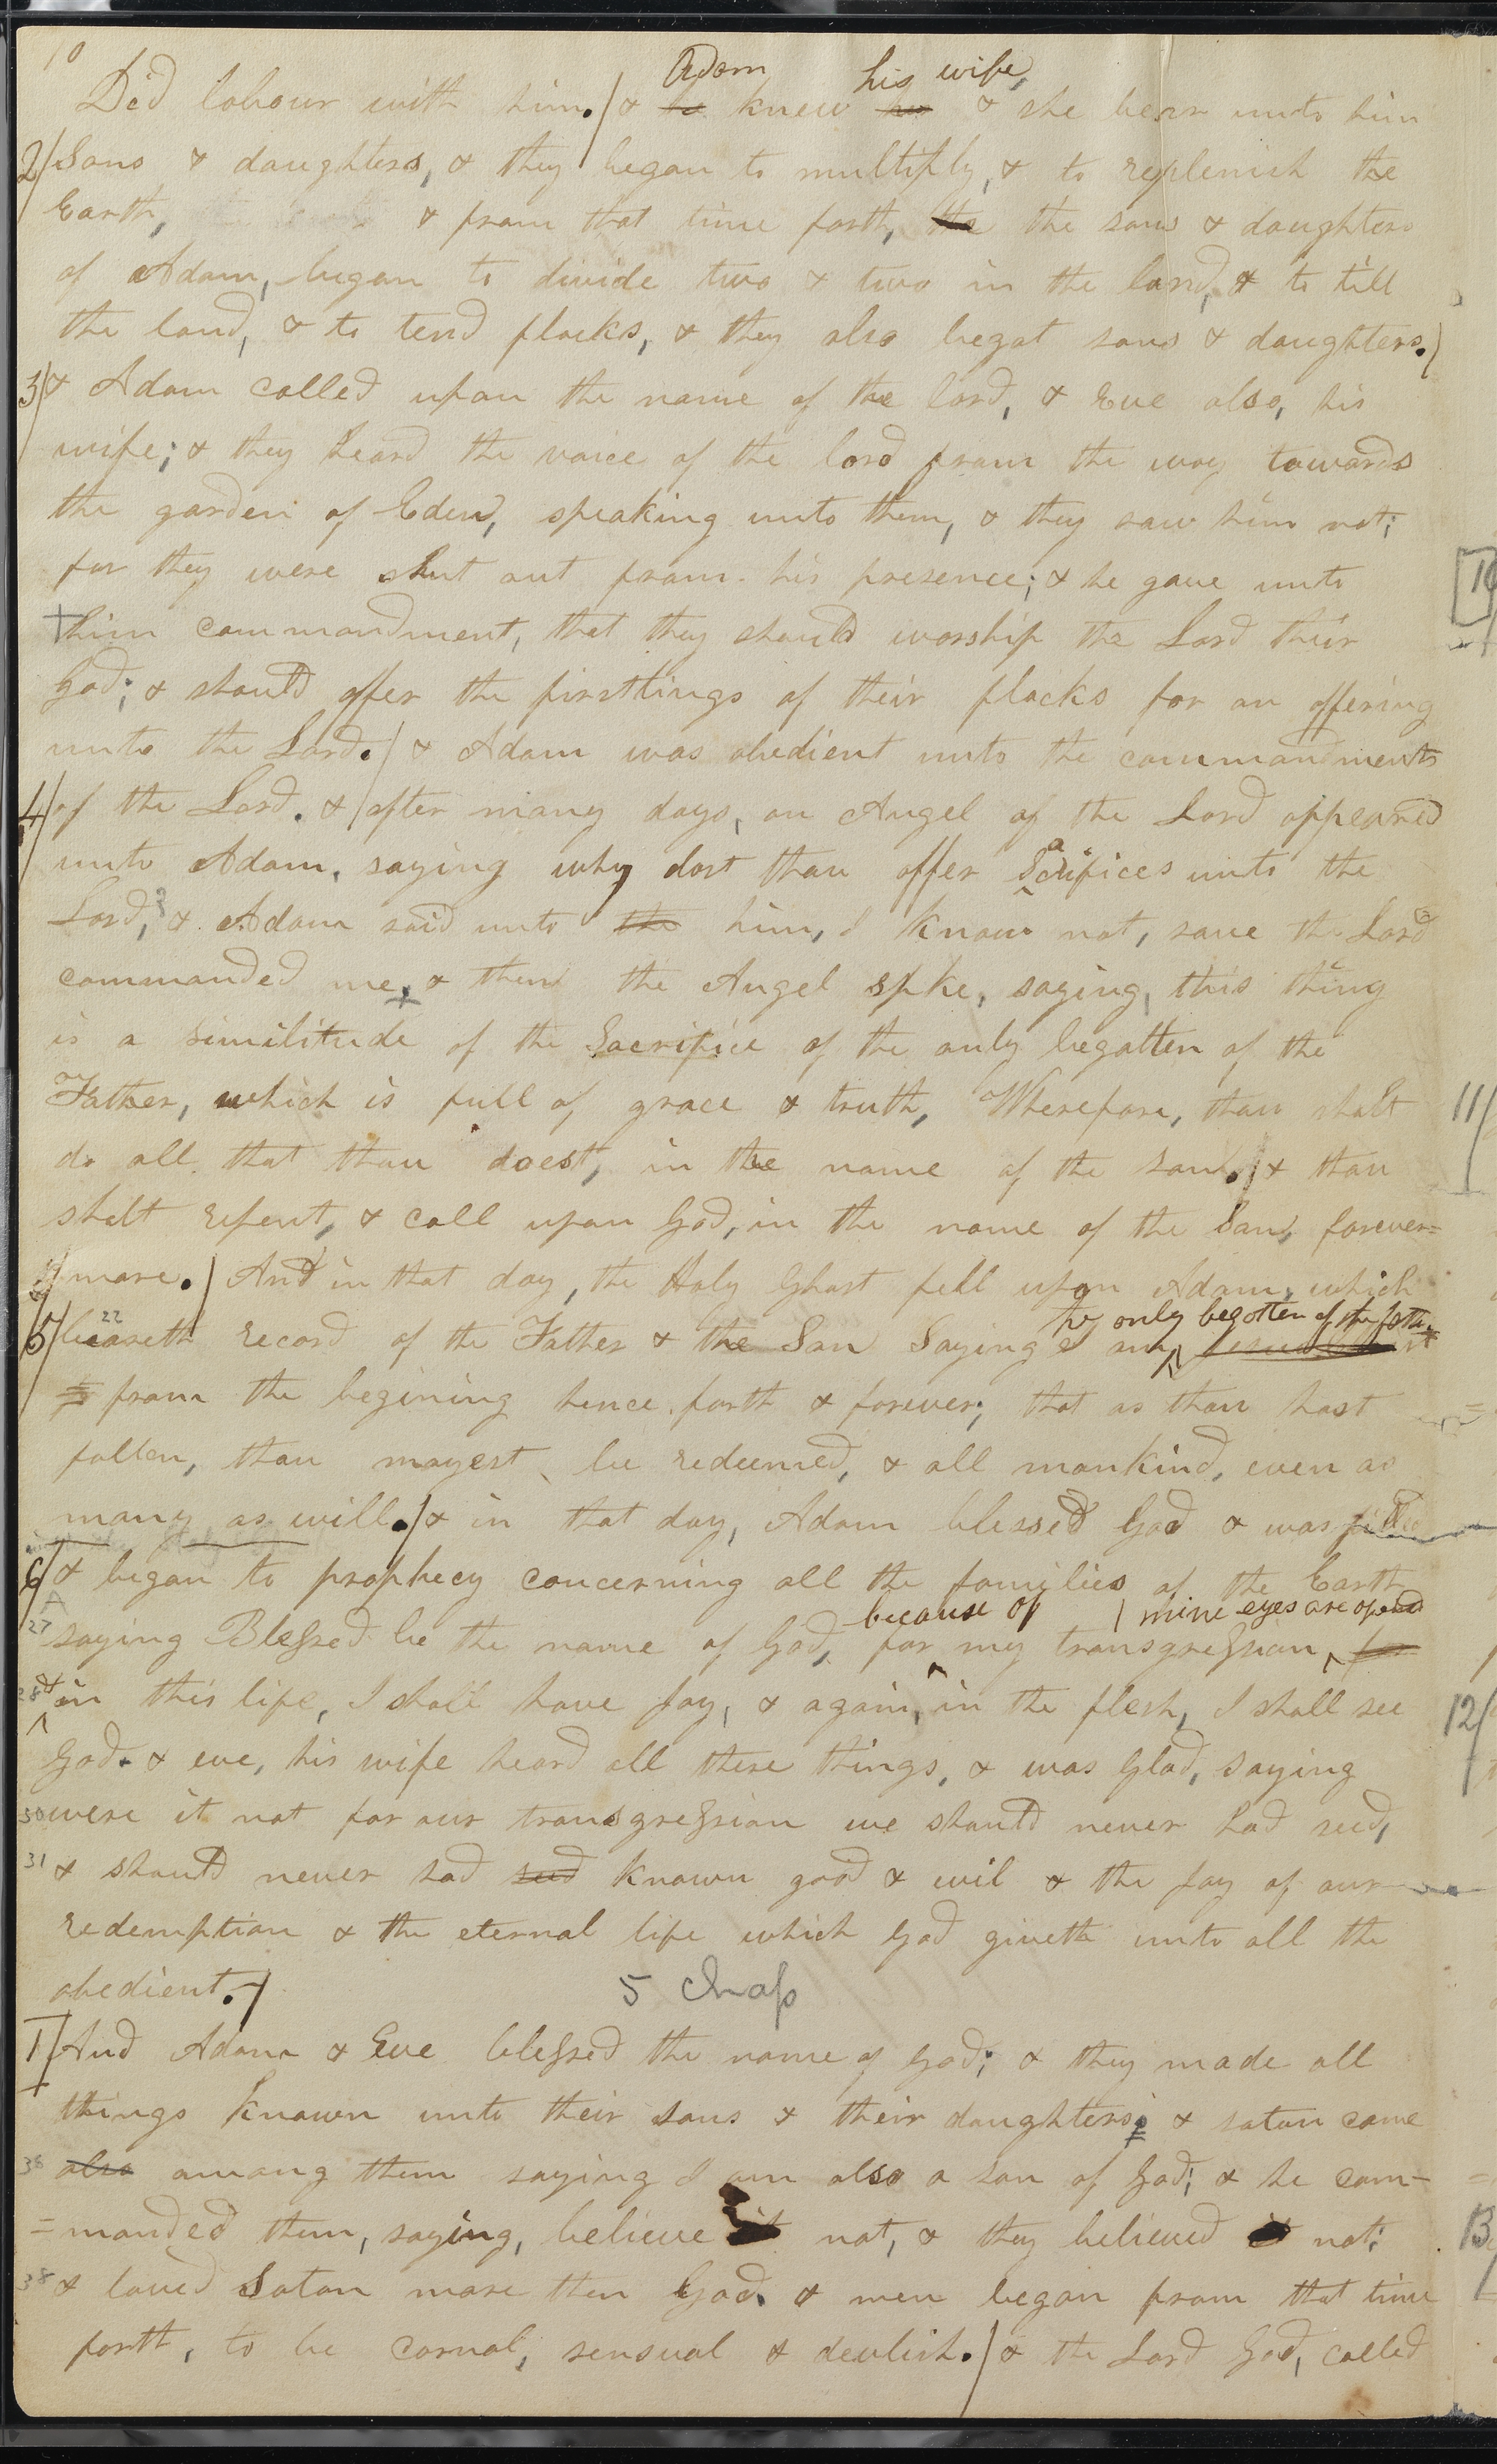 10
Adam his wife,
Did labour with him./ & he knew her & she bear unto him
2/ Sons & daughters, & they began to multiply, & to replenish the
Earth, & from that time forth, the the sons & daughters
of Adam, began to divide two & two in the land, & to till
the land, & to tend flocks, & they also begat sons & daughters./
3/ & Adam called upon the name of the lord, & Eve also, his
wife; & they heard the voice of the lord from the way towards
the garden of Eden, speaking unto them, & they saw him not;
for they were shut out from his presence; & he gave unto
10
+him commandment, that they should worship the Lord their
God; & should offer the firstlings of their flocks for an offering
unto the Lord./ & Adam was obedient unto the commandments
4/ of the Lord. & / after many days, an Angel of the Lord appeared
unto Adam, saying why dost thou offer Sacrifices unto the
Lord,? & Adam said unto the him, I know not, save the Lord
commanded me, & then the Angel spke, saying, this thing
is a similitude of the Sacrifice of the only begatten of the
Father, which is full of grace & truth, Wherefore, thou shalt
11/
do all that thou doest, in the name of the son./ & thou
shalt repent, & call upon God, in the name of the Son, forever=
more./ And in that day, the Holy Ghost fell upon Adam, which
the only begotten of the father
5/ 22 beareth record of the Father & the Son Saying I am
from the begining hence forth & forever; that as thou hast
fallen, thou mayest be redeemed, & all mankind, even as
many as will./ & in that day, Adam blessed God & was filled
6/ & began to prophecy concerning all the families of the Earth
because of / mine eyes are opened
27 saying Blessed be the name of God, for my transgression, for
28 & in this life, I shall have Joy, & again, in the flesh, I shall see
12/
God. & eve, his wife heard all these things, & was Glad, saying
30 were it not for our transgression we should never had seed,
31 & should never had seed known good & evil & the Joy of our
redemption & the eternal life which God giveth unto all the
obedient./
5 Chap
1/ And Adam & Eve blessed the name of God; & they made all
things known unto their sons & their daughters; & satan came
36 also among them saying I am also a son of God; & he com-
=manded them, saying, believe it not, & they believed it not;
13
38 & loved Satan more then God. & men began from that time
forth, to be carnal, sensual & devlish./ & the Lord God, called